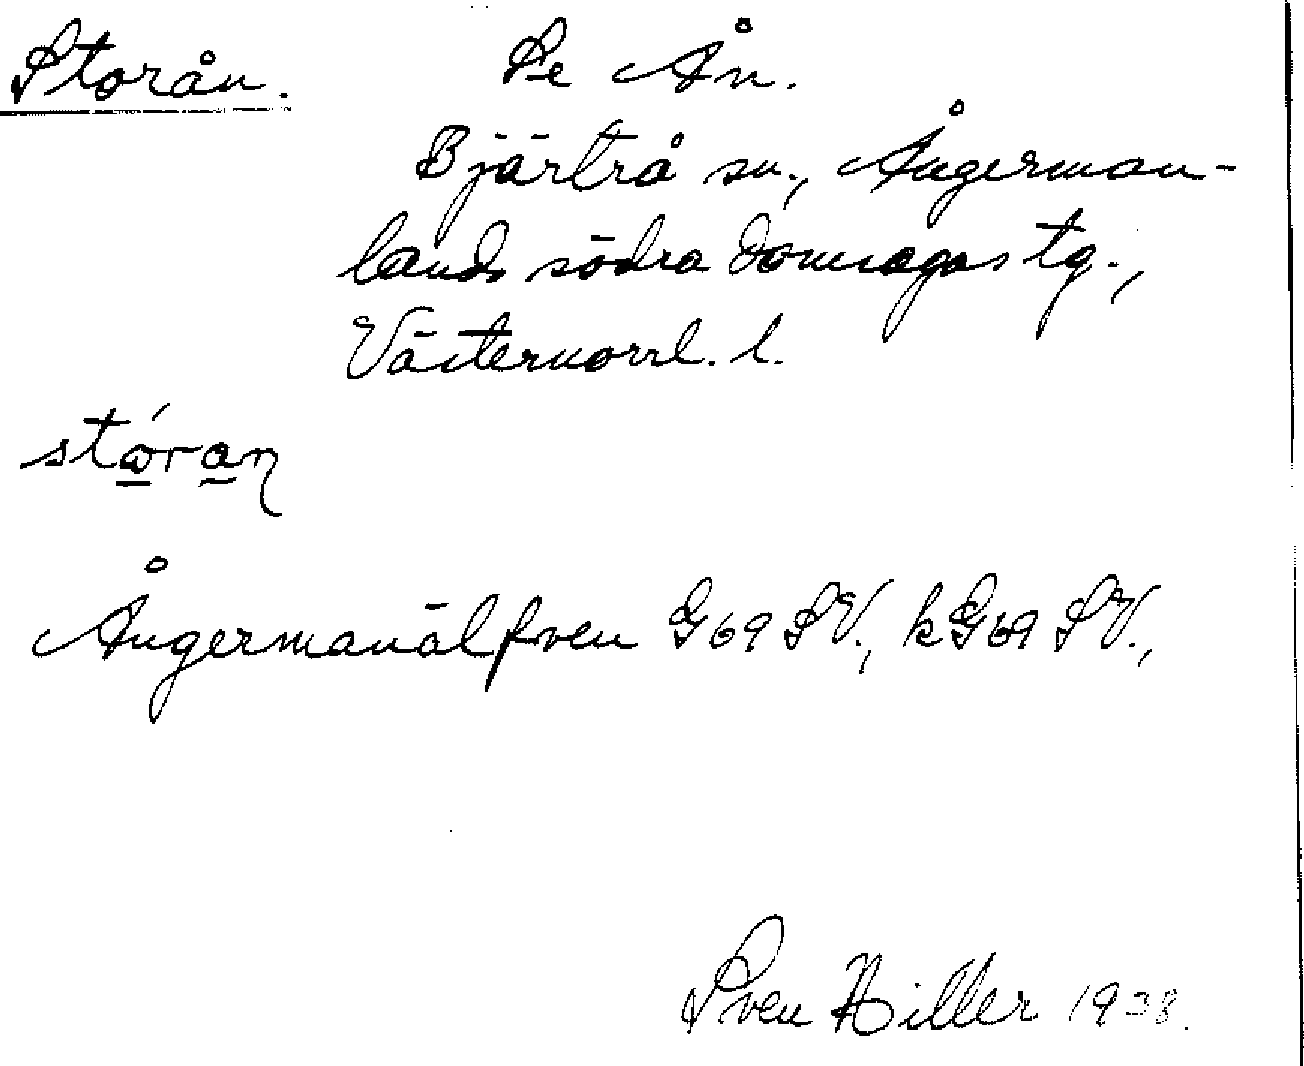 Storån. Se Ån.
Bjärtrå sn., Ångerman-
lands södra domsagas tg.,
Västernorrl. l.
stóran
Ångermanälfven G69 SV., kG69 SV.,
Sven Hiller 1938.